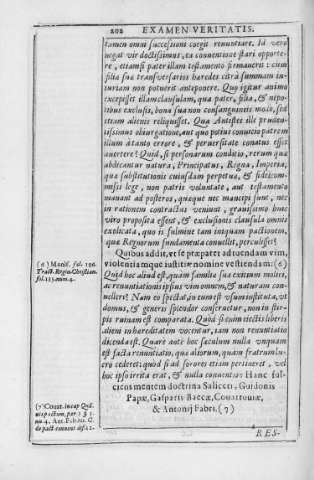 202 EXAMEN VERITATIS.
tamen omni successioni coegit renuntiare. Id vero
negat vir doctissimus, ex conventione stari opporte-
re, etiamsi pater illam testamento firmaverit: cum
filia sua transversarios haredes citrà summam in-
iuriam non potuerit anteponere. Quo igitur animo
excepisset illam clausulam, qua pater, filia, & nepo-
tibus exclusis, bona sua non consanguineis modo, sed
etiam alienis reliquisset. Qua Antistes ille pruden-
tissimus obiurgatione, aut quo potius convicio patrem
illum à tanto errore, & perversitate conatus esset
avertere? Quid, si personarum conditio, rerum qua
abdicantur natura, Principatus, Regna, Imperia,
qua substitutionis cuiusdam perpetua, & fideicom-
missi lege, non patris voluntate, aut testamento
manant ad posteros, quaque nec mancipi sunt, nec
in rationem contractus veniunt, gravissimo huic
viro proposita essent, & exclusionis clausula omnis
explicata, quo is fulmine tam iniquam pactionem,
qua Regnorum fundamenta convellit, perculisset?
Quibus addit, vt se præparet ad tuendam vim,
violentiamque iustitiæ nomine vestiendam: (6)
(6) Manif. fol. 196.
Tract. Regio Christian.
fol. 133. num. 4.
Quid hoc aliud est, quàm familia sua exitium moliri,
ac renuntiationis ipsius vim omnem, & naturam con-
vellere? Nam eo spectat, eo tum est vsum instituta, vt
domus, & generis splendor conservetur, non in stir-
pis ruinam est comparata. Quòd si eam neclis liberis
alieni in hareditatem vocentur, iam non renuntiatio
dicenda est. Quare autè hoc saculum nulla vnquam
est facta renuntiatio, qua aliorum, quàm fratrum lu-
cro cederet: quòd si ad sorores etiam pertineret, vel
hoc ipso irrita erat, & nulla conventio. Hanc ful-
cicns mentem doctrina Saliceti, Guidonis
Papæ, Gasparis Baeçæ, Couarrouiæ,
& Antonij Fabri. (7)
(7) Couar. in cap Quá-
uis pactum, par. 3 §. 1.
nu. 4. Ant. Faber. C.
de pact. conuent. def. 12.
RES-